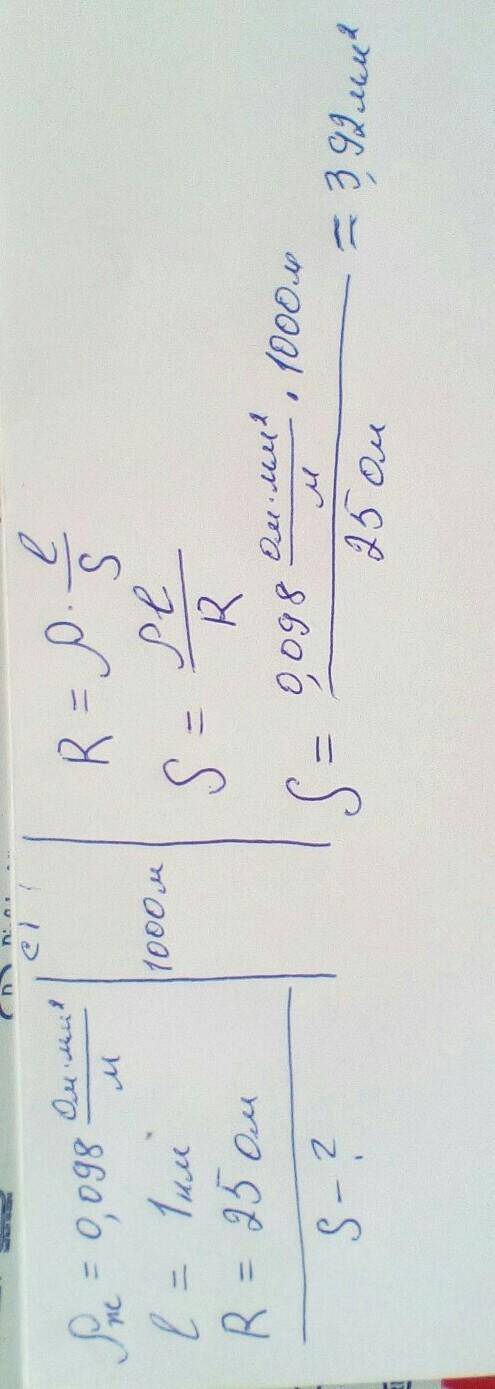 ρж = 0,098 Ом·мм²/м
l = 1км
R = 25 Ом
S - ?
СИ
1000м
R = ρ · l/S
S = ρl/R
S = 0,098 Ом·мм²/м · 1000м / 25 Ом = 3,92мм²